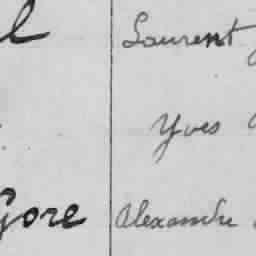 Laurent
Yves
Gore Alexandre